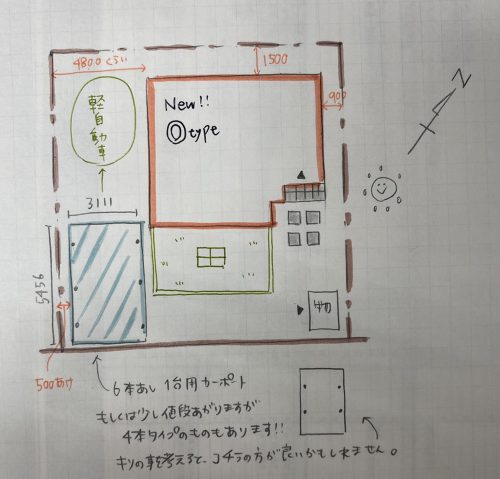 4800くらい
1500
900
N
軽自動車
New!!
◎type
3111
5456
物
500あけ
6本あし 1台用カーポート
もしくは少し値段あがりますが
4本タイプのものもあります!!
キリの事考えると、コチラの方が良いかもしれません。